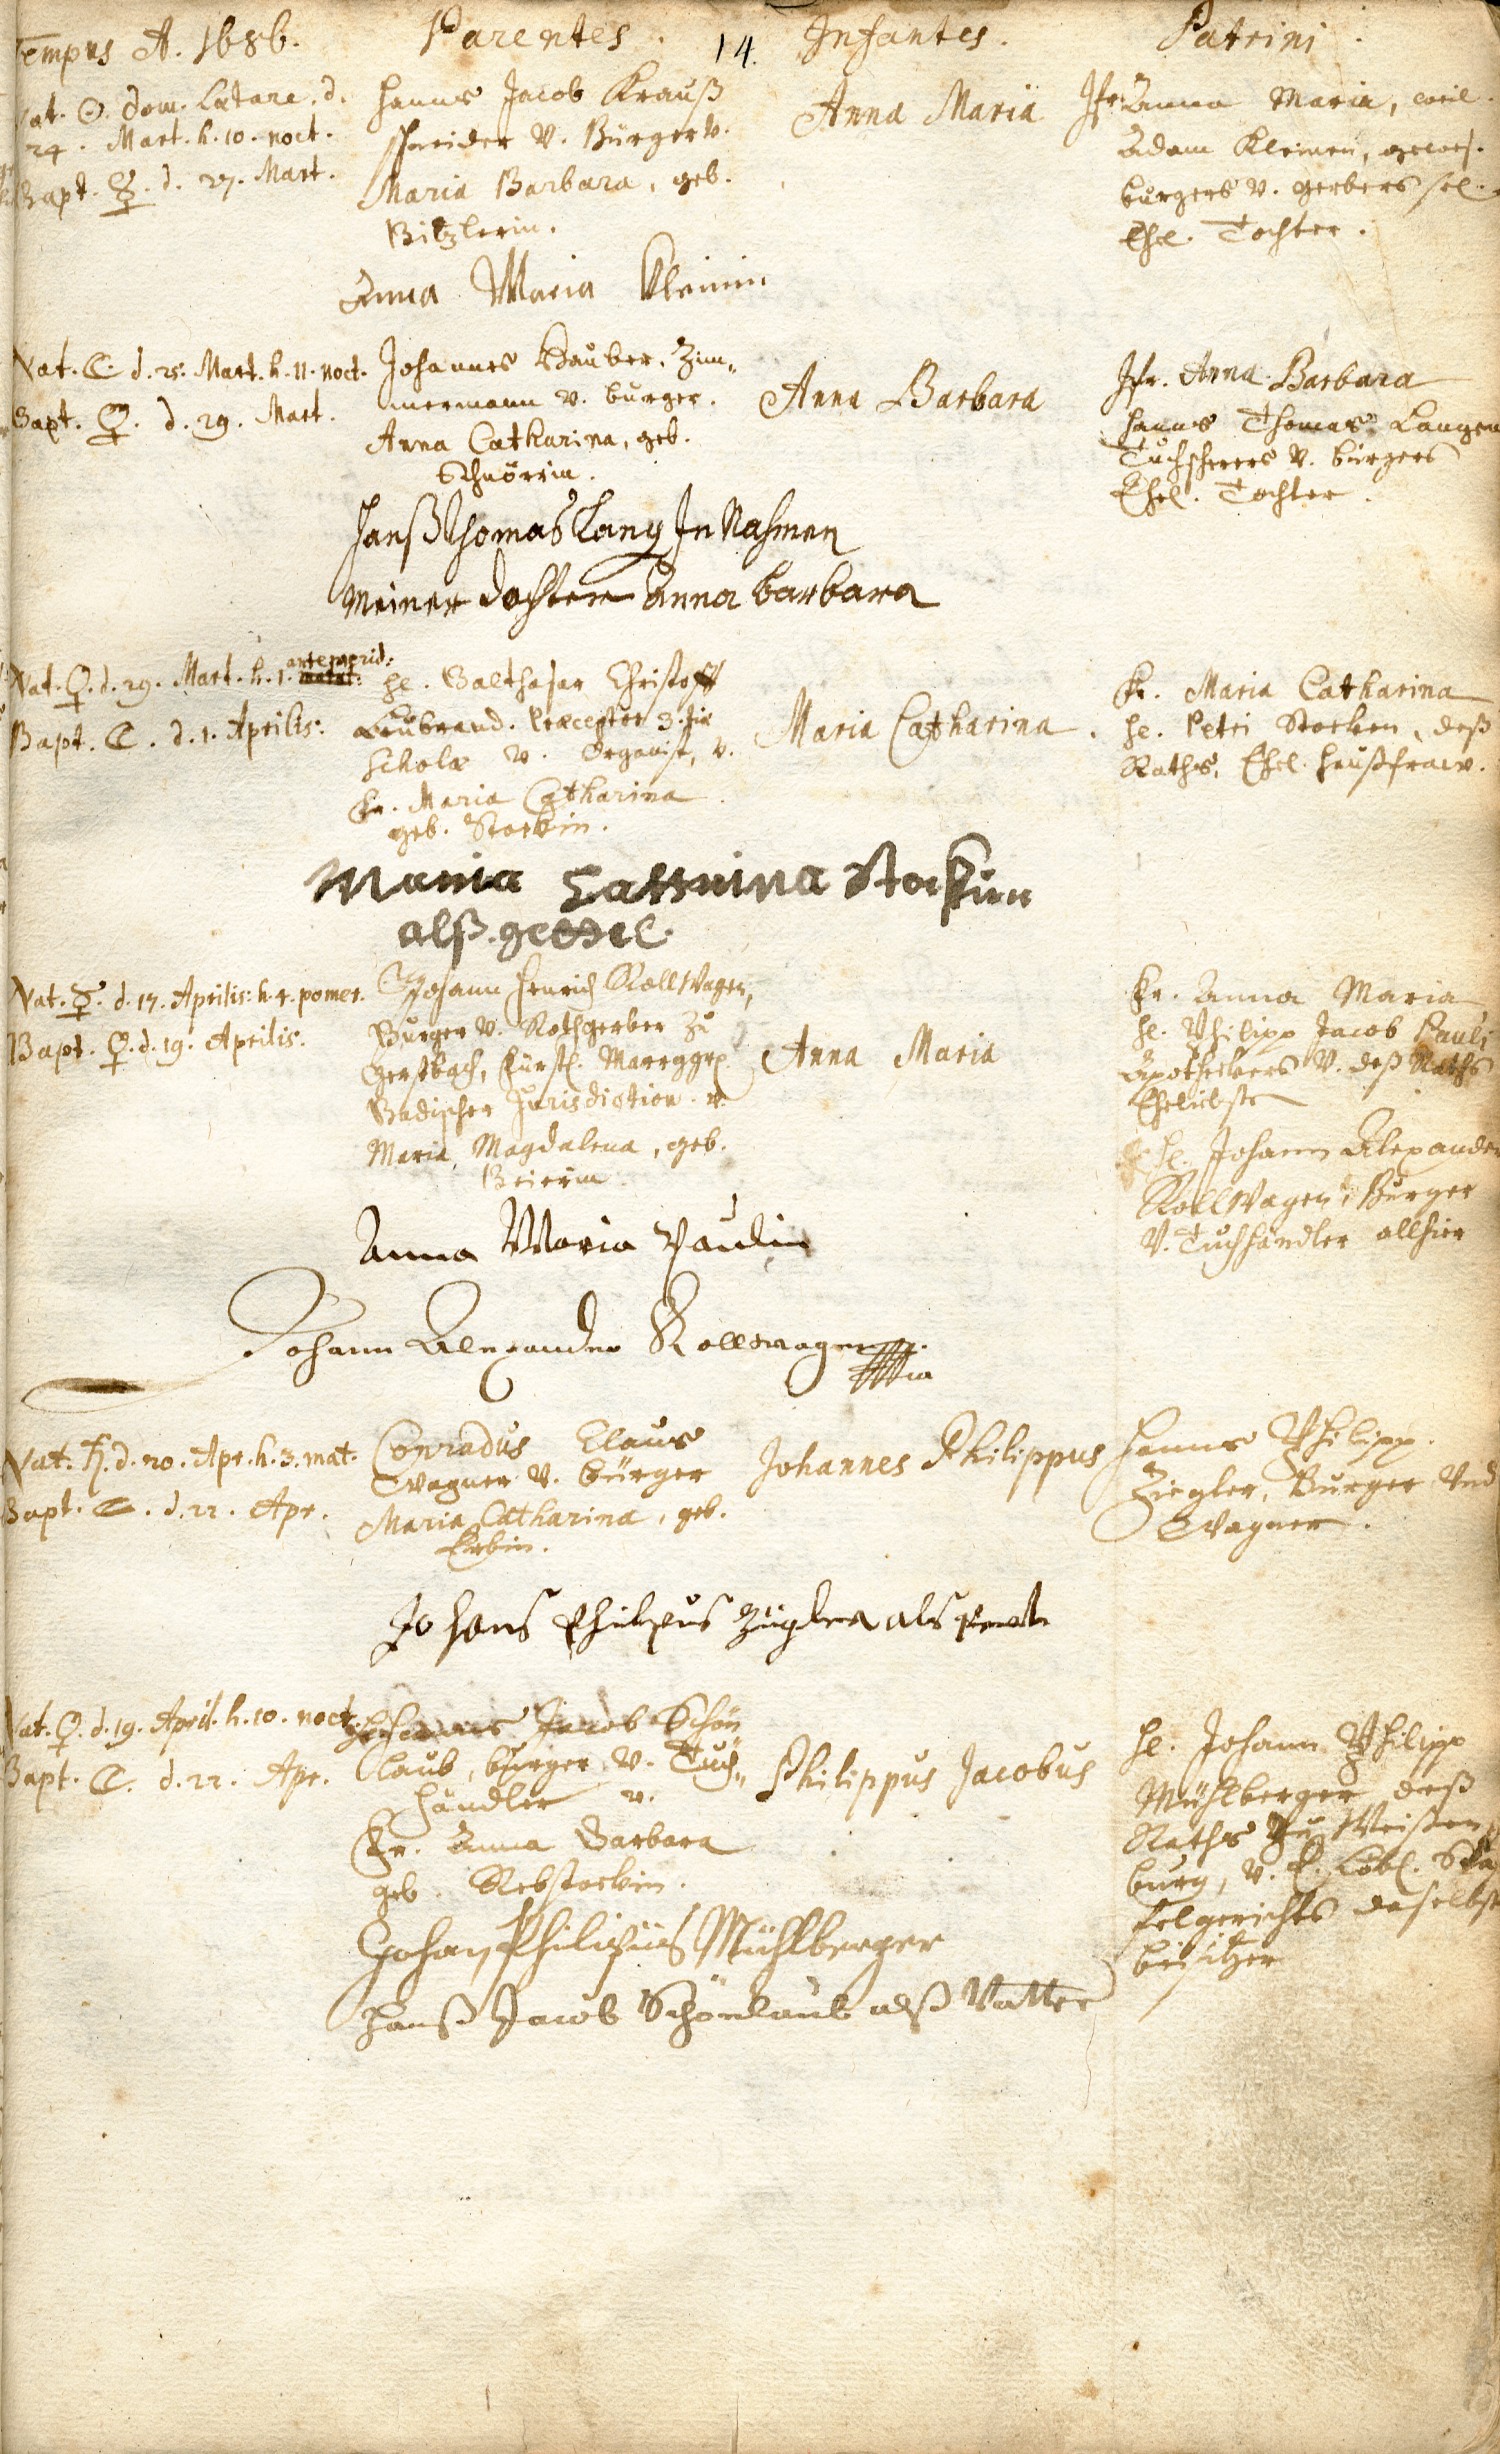 Tempus A. 1686.
Parentes.
14.
Infantes.
Patrini.
Nat. ☉. dom. Lætare. d.
24. Mart. h. 10. noct.
Bapt. ☿. d. 27. Mart.
Hanns Jacob Krauß
schneider v. Bürger v.
Maria Barbara, geb.
Bitzlerin.
Anna Maria
Jfr. Anna Maria, weil.
Adam Kleinen, gewes.
burgers v. gerbers sel.
Ehel. Tochter.
Anna Maria Kleinin
Nat. ☾. d. 25. Mart. h. 11. noct.
Bapt. ♀. d. 29. Mart.
Johannes Hauber, Zim„
mermann v. burger.
Anna Catharina, geb.
Schnörrin.
Anna Barbara
Jfr. Anna Barbara
Hanns Thomas Langen
Tuchscherers v. bürgers
Ehel. Tochter.
Hanß Thomas Lang In Nahmen
Meiner dochter anna barbara
Nat. ♀. d. 29. Mart. h. 1. antemerid:
Bapt. ☾. d. 1. Aprilis:
He. Balthasar Christoff
Leübrand. Præceptor 3.tiæ
Scholæ v. Organist, v.
Fr. Maria Catharina
geb. Stockin.
Maria Catharina.
Fr. Maria Catharina
He. Petri Stocken, deß
Raths, Ehel. Haußfraw.
Maria Cattrina Stockin
alß gettel.
Nat. ☿. d. 17. Aprilis: h. 4. pomer.
Bapt. ♀. d. 19. Aprilis.
Johann Henrich Rollwagen,
Burger v. Rothgerber zu
Gerspach, Fürstl. Marggr.
Badischer Jurisdiction. v.
Maria Magdalena, geb.
Beierin
Anna Maria
Fr. Anna Maria
He. Philipp Jacob Pauli
Apotheckers v. deß Raths
Eheliebste
He. Johann Alexander
Rollwagen, Burger
v. Tuchhändler allhier
Anna Maria Paulin
Johann Alexander Rollwagen
Nat. ♄. d. 20. Apr. h. 3. mat.
Bapt. ☾. d. 22. Apr.
Conradus Claus
Wagner v. bürger
Maria Catharina, geb.
Erbin.
Johannes Philippus
Hanns Philipp
Ziegler, Burger Und
Wagner.
Johans Philipus Zügler als
Nat. ♀. d. 19. April. h. 10. noct.
Bapt. ☾. d. 22. Apr.
Hanns Jacob Schön
laub, burger v. Tuch„
händler v.
Fr. Anna Barbara
geb. Rebstockin.
Philippus Jacobus
He. Johann Philipp
Mühlberger deß
Raths zu Weissen
burg, v. E. Löbl. Staf
felgerichts daselbst
beisitzer
Johan Philipus Mühlberger
Hanß Jacob Schönlaub alß Vatter